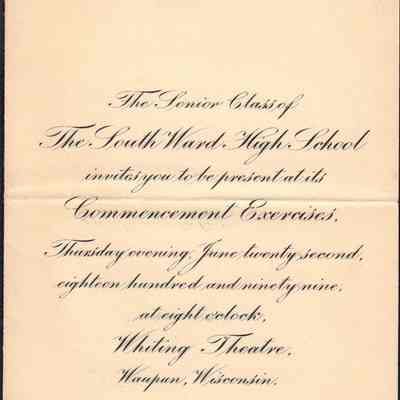 The Senior Class of
The South Ward High School
invites you to be present at its
Commencement Exercises,
Thursday evening, June twenty second,
eighteen hundred and ninety nine,
at eight o'clock,
Whiting Theatre,
Waupun, Wisconsin.